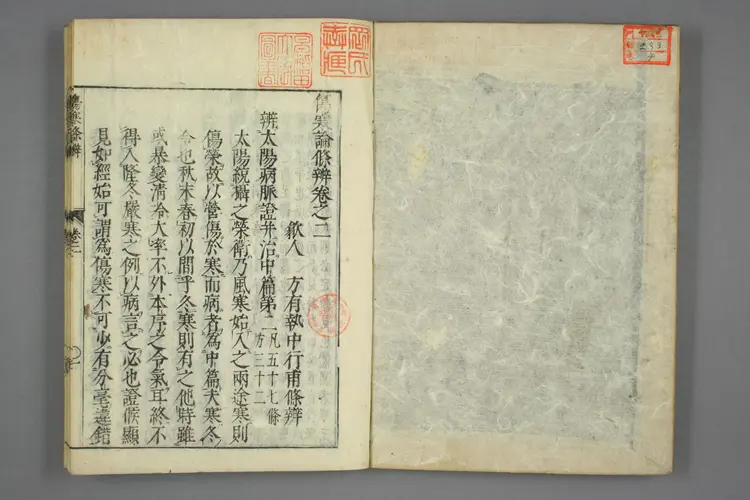 傷寒論條辨卷之二
歙人 方有執中行甫條辨
辨太陽病脈證并治中篇第二凡五十七條
方三十二
太陽統攝之榮衛乃風寒始入之兩途寒則
傷榮故以營傷於寒而病者為中篇夫寒冬
令也秋末春初以間乎冬寒則有之他時雖
或暴變淸冷大率不外本序之令氣耳終不
得入隆冬嚴寒之例以病言之必也證候顯
見如經始可謂為傷寒不可少有分毫差錯
傷寒條辨
卷之二